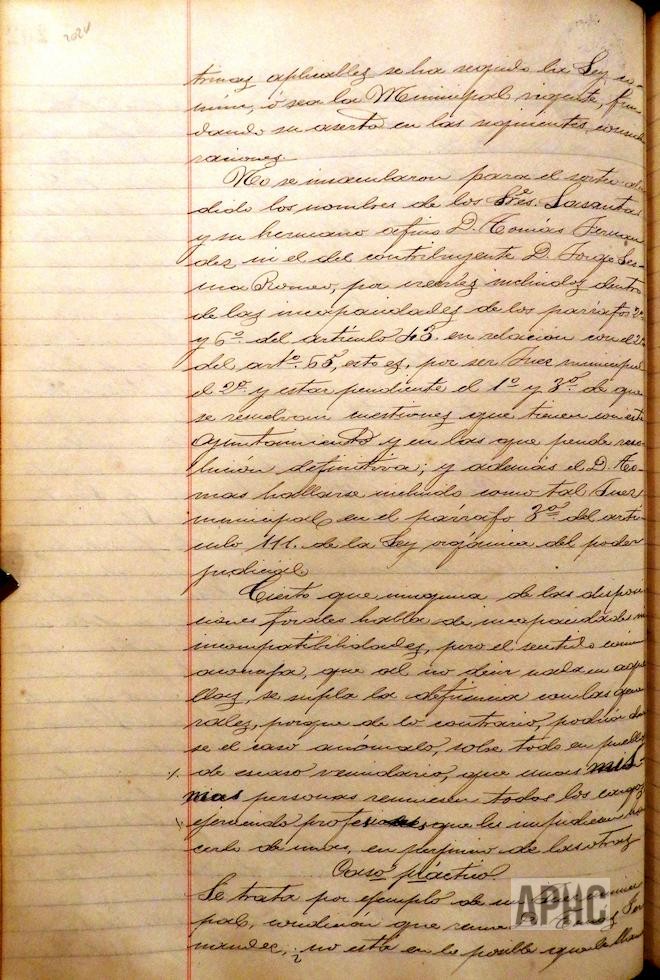 trinas aplicables se ha seguido la Ley co-
mún, ó sea la Municipal vigente, fun-
dando su aserto en las siguientes conside
raciones
No se insacularon para el sorteo alu
dido los nombres de los Sres. Lasantas
y su hermano afin D. Tomás Fernan
dez ni el del contribuyente D. Jorge Ses-
ma Romeo, por creerles incluidos dentro
de las incapacidades de los párrafos 2º
y 6º del artículo 43 en relacion con el 2º
del artº. 65, esto es, por ser Juez municipal
el 2º y estar pendiente el 1º y 3º de que
se resuelvan cuestiones que tienen con este
Ayuntamiento y en las que pende reso
lución definitiva; y además el D. To
mas hallarse incluido como tal Juez
municipal en el párrafo 3º del artí
culo 111. de la Ley orgánica del poder
judicial.
Cierto que ninguna de las disposi
ciones forales habla de incapacidades ni
incompatibilidades, pero el sentido comun
aconseja, que al no decir nada en aque
llas, se supla la deficiencia con las gene
rales, porque de lo contrario, podría dar
se el caso anómalo, sobre todo en pueblos
de escaso vecindario, que unas mis-
mas personas reuniesen todos los cargos
ejerciendo que les impidiesen ha
cerlo de unos, en perjuicio de las otras
Caso práctico
Se trata por ejemplo de un Juez munici
pal, condición que reune D. Tomás Fer
nandez, ¿no está en lo posible que le
APHC
2024